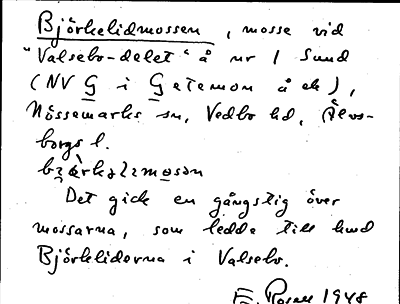 Björkelidmossen, mosse vid
"Valsebo-delet" å nr 1 Sund
(NV G i Getemon å ek),
Nössemarks sn, Vedbo hd, Älvs-
borgs l.
Det gick en gångstig över
mossarna, som ledde till
Björkliderna i Valsebo.
E. Rosell 1948